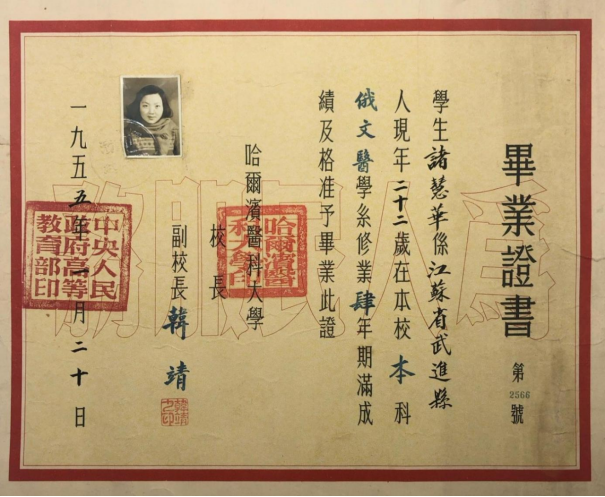 畢業證書
第2566號
學生諸慧華係江蘇省武進縣
人現年二十二歲在本校本科
俄文醫學系修業肆年期滿成
績及格准予畢業此證
哈爾濱醫科大學
校長
副校長韓靖
韓靖之印
哈爾濱醫科大學印
一九五五年二月二十日
中央人民政府高等教育部印